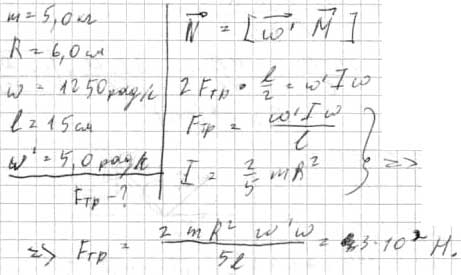 m = 5,0 кг
R = 6,0 см
ω = 1250 рад/с
l = 15 см
ω' = 5,0 рад/с
Fтр - ?
N⃗ = [ω⃗' M⃗]
2 Fтр · l/2 = ω' I ω
Fтр = ω' I ω / l
I = 2/5 mR² } =>
=> Fтр = 2 mR² ω' ω / 5l = 3·10² Н.